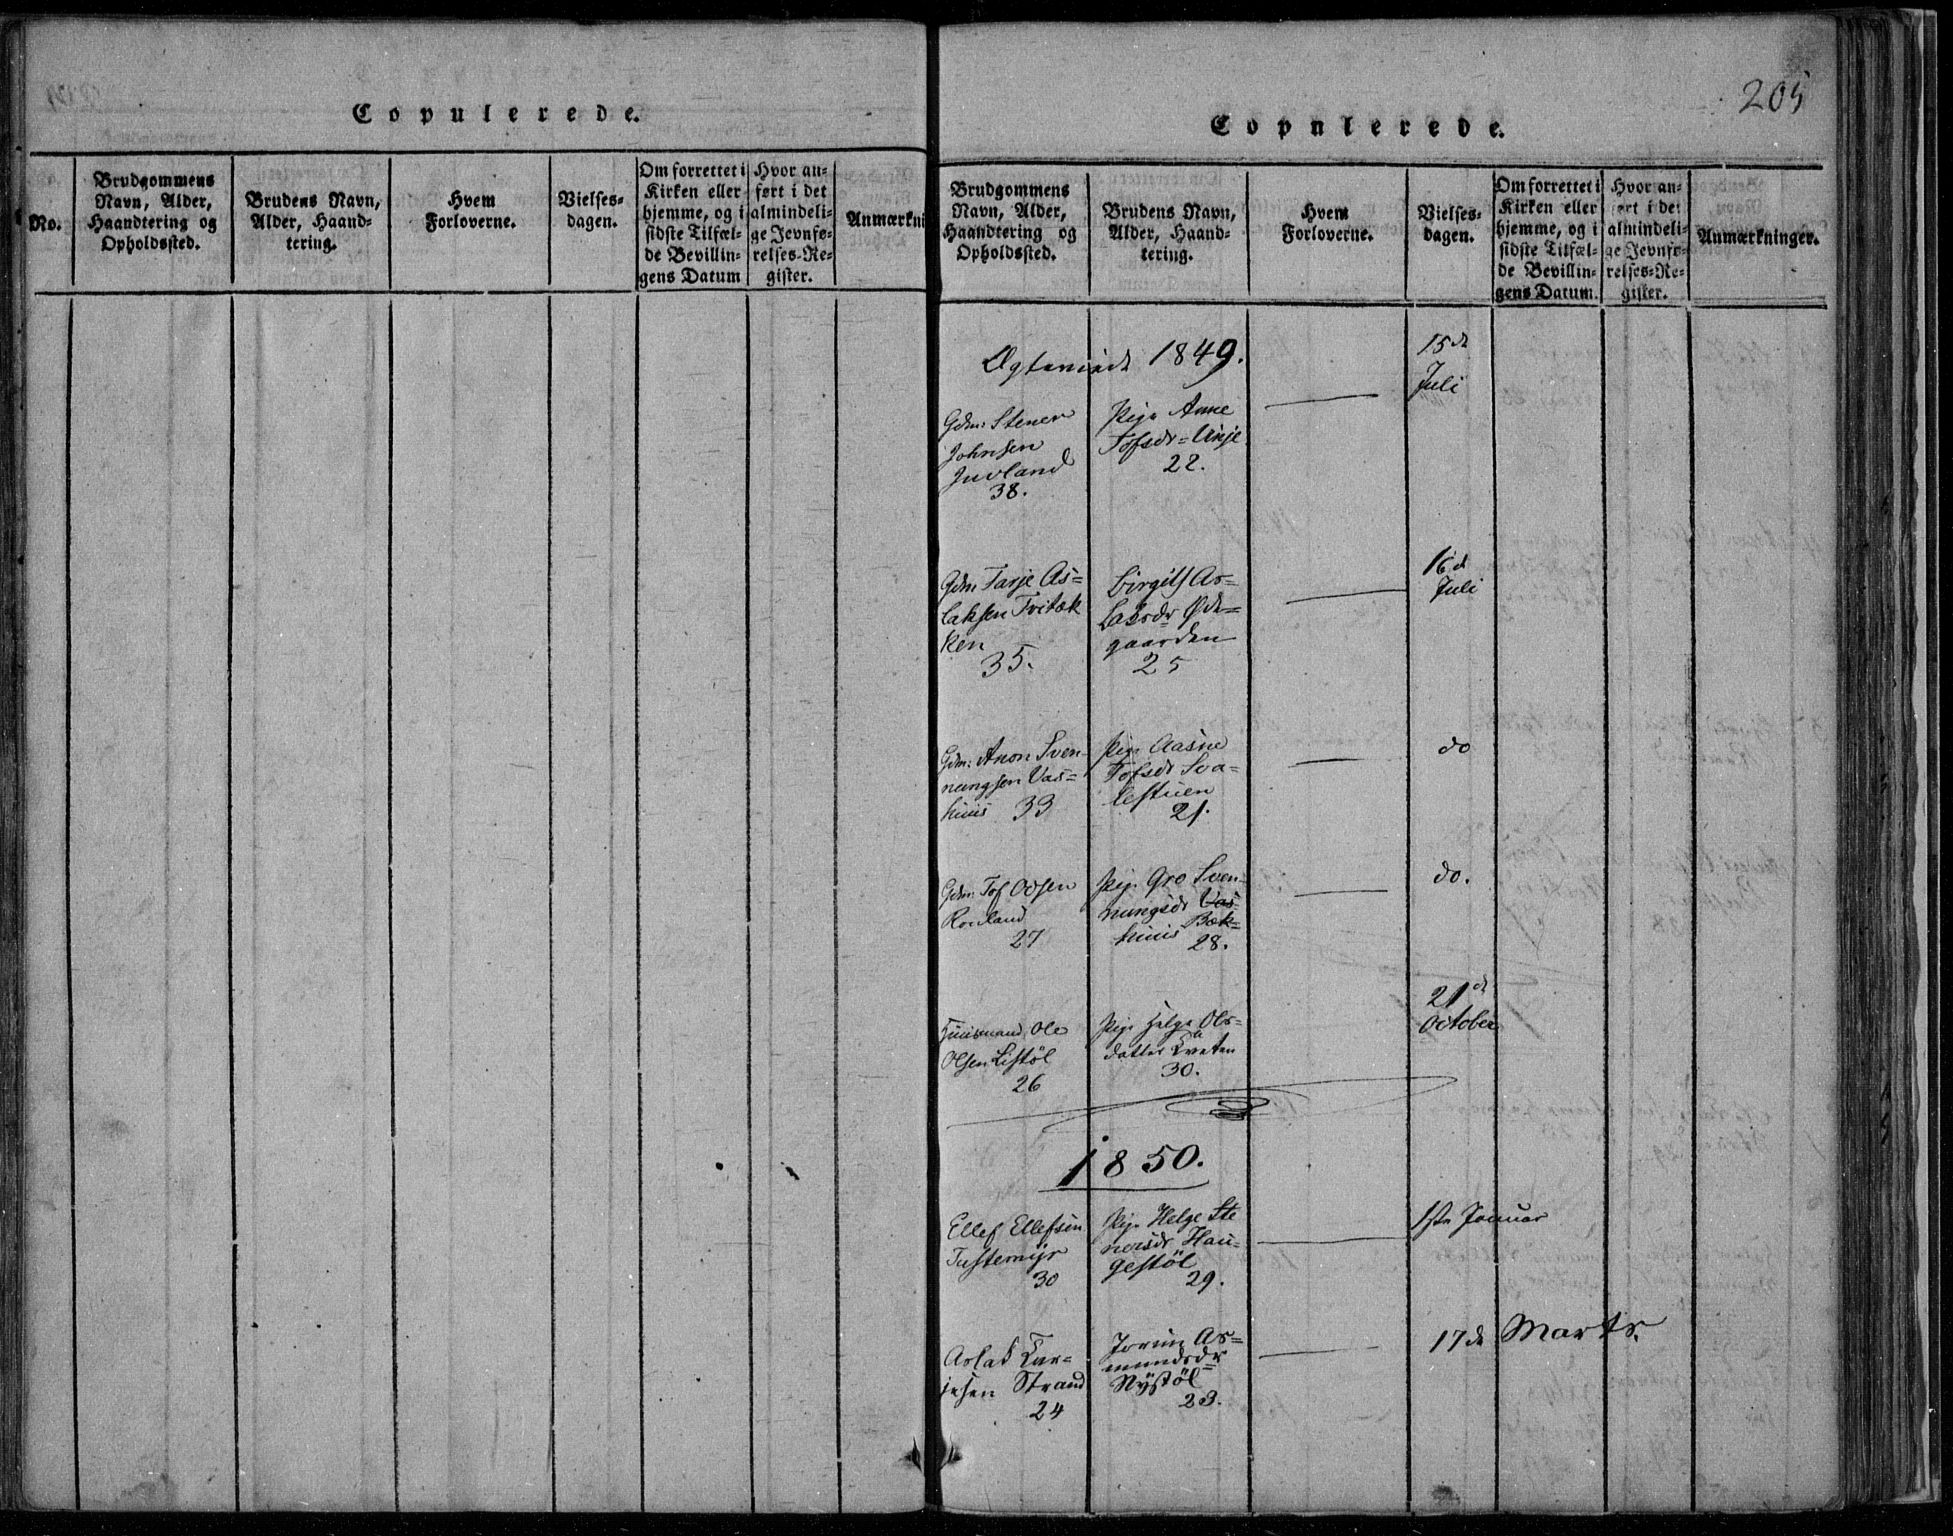 Copulerede.
No.
Brudgommens
Navn, Alder,
Haandtering og
Opholdssted.
Brudens Navn,
Alder, Haand-
tering.
Hvem
Forloverne.
Vielses-
dagen.
Om forrettet i
Kirken eller
hjemme, og i
sidste Tilfæl-
de Bevillin-
gens Datum
Hvor an-
ført i det
almindeli-
ge Jevnfø-
relses-Re-
gister.
Anmærkni
205
Copulerede.
Brudgommens
Navn, Alder,
Haandtering og
Opholdssted.
Brudens Navn,
Alder, Haand-
tering.
Hvem
Forloverne.
Vielses-
dagen.
Om forrettet i
Kirken eller
hjemme, og i
sidste Tilfæl-
de Bevillin-
gens Datum.
Hvor an-
ført i det
almindeli-
ge Jevnfø-
relses-Re-
gister.
Anmærkninger.
Ægteviede 1849.
Gdm: Stener
Johnsen
Juvland
38.
Pige Anne
Tofsdr = Vinje
22.
15de
Juli
Gdm: Tarje As=
laksen Tvitæk
ken
35.
Birgith As=
laksdr Øde=
gaarden
25
16d
Juli
Gdm: Anon Sven-
nungsen Vas=
huus 33
Pige Aasne
Tofsdr Sva=
lestuen
21.
do
Gdm: Tof Odsen
Rouland
27
Pige Gro Sven-
nungsdr Vas-
Bæk=
huus 28.
do.
Huusmand Ole
Olsen Listöl
26
Pige Helge Ols=
datter Kvaten
30.
21de
October
1850.
Ellef Ellefsen
Tuftemyr
30
Pige Helge Ste
nersdr Hau=
gestöl
29.
1ste Januar
Aslak Tar=
jesen Strand
24
Jorun As=
mundsdr
Nystöl
23.
17de Marts.